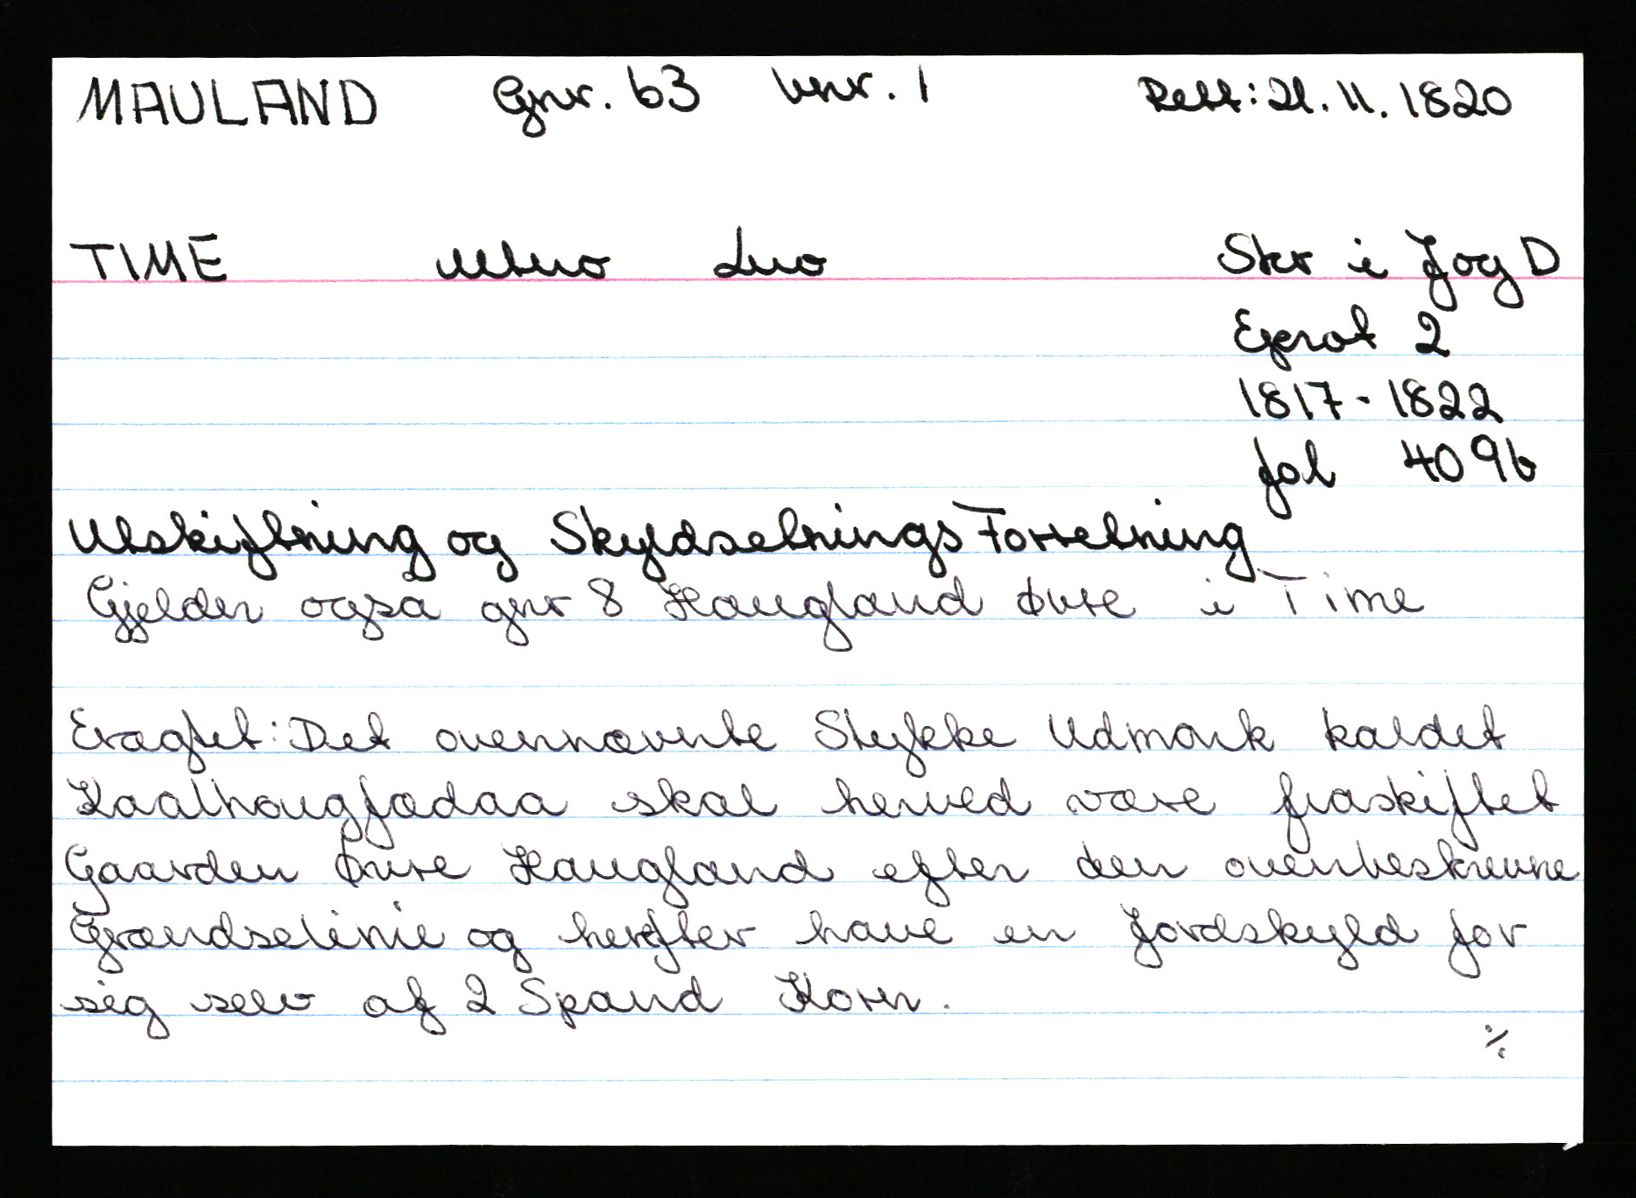 MAULAND Gnr. 63 bnr. 1 Rett: 21.11.1820
TIME Skr i Jog D
Eprot 2
1817-1822
fol 409b
Utskiftning og SkyldsetningsForretning
Gjelder også gnr 8 Haugland Øvre i Time
Eragtet: Det ovennævnte Stykke Udmark kaldet
Kaalhougfædaa skal herved være fraskiftet
Gaarden Øvre Haugland efter den ovenbeskrevne
Grændselinie og herefter have en Jordskyld for
sig selv af 2 Spand Korn.